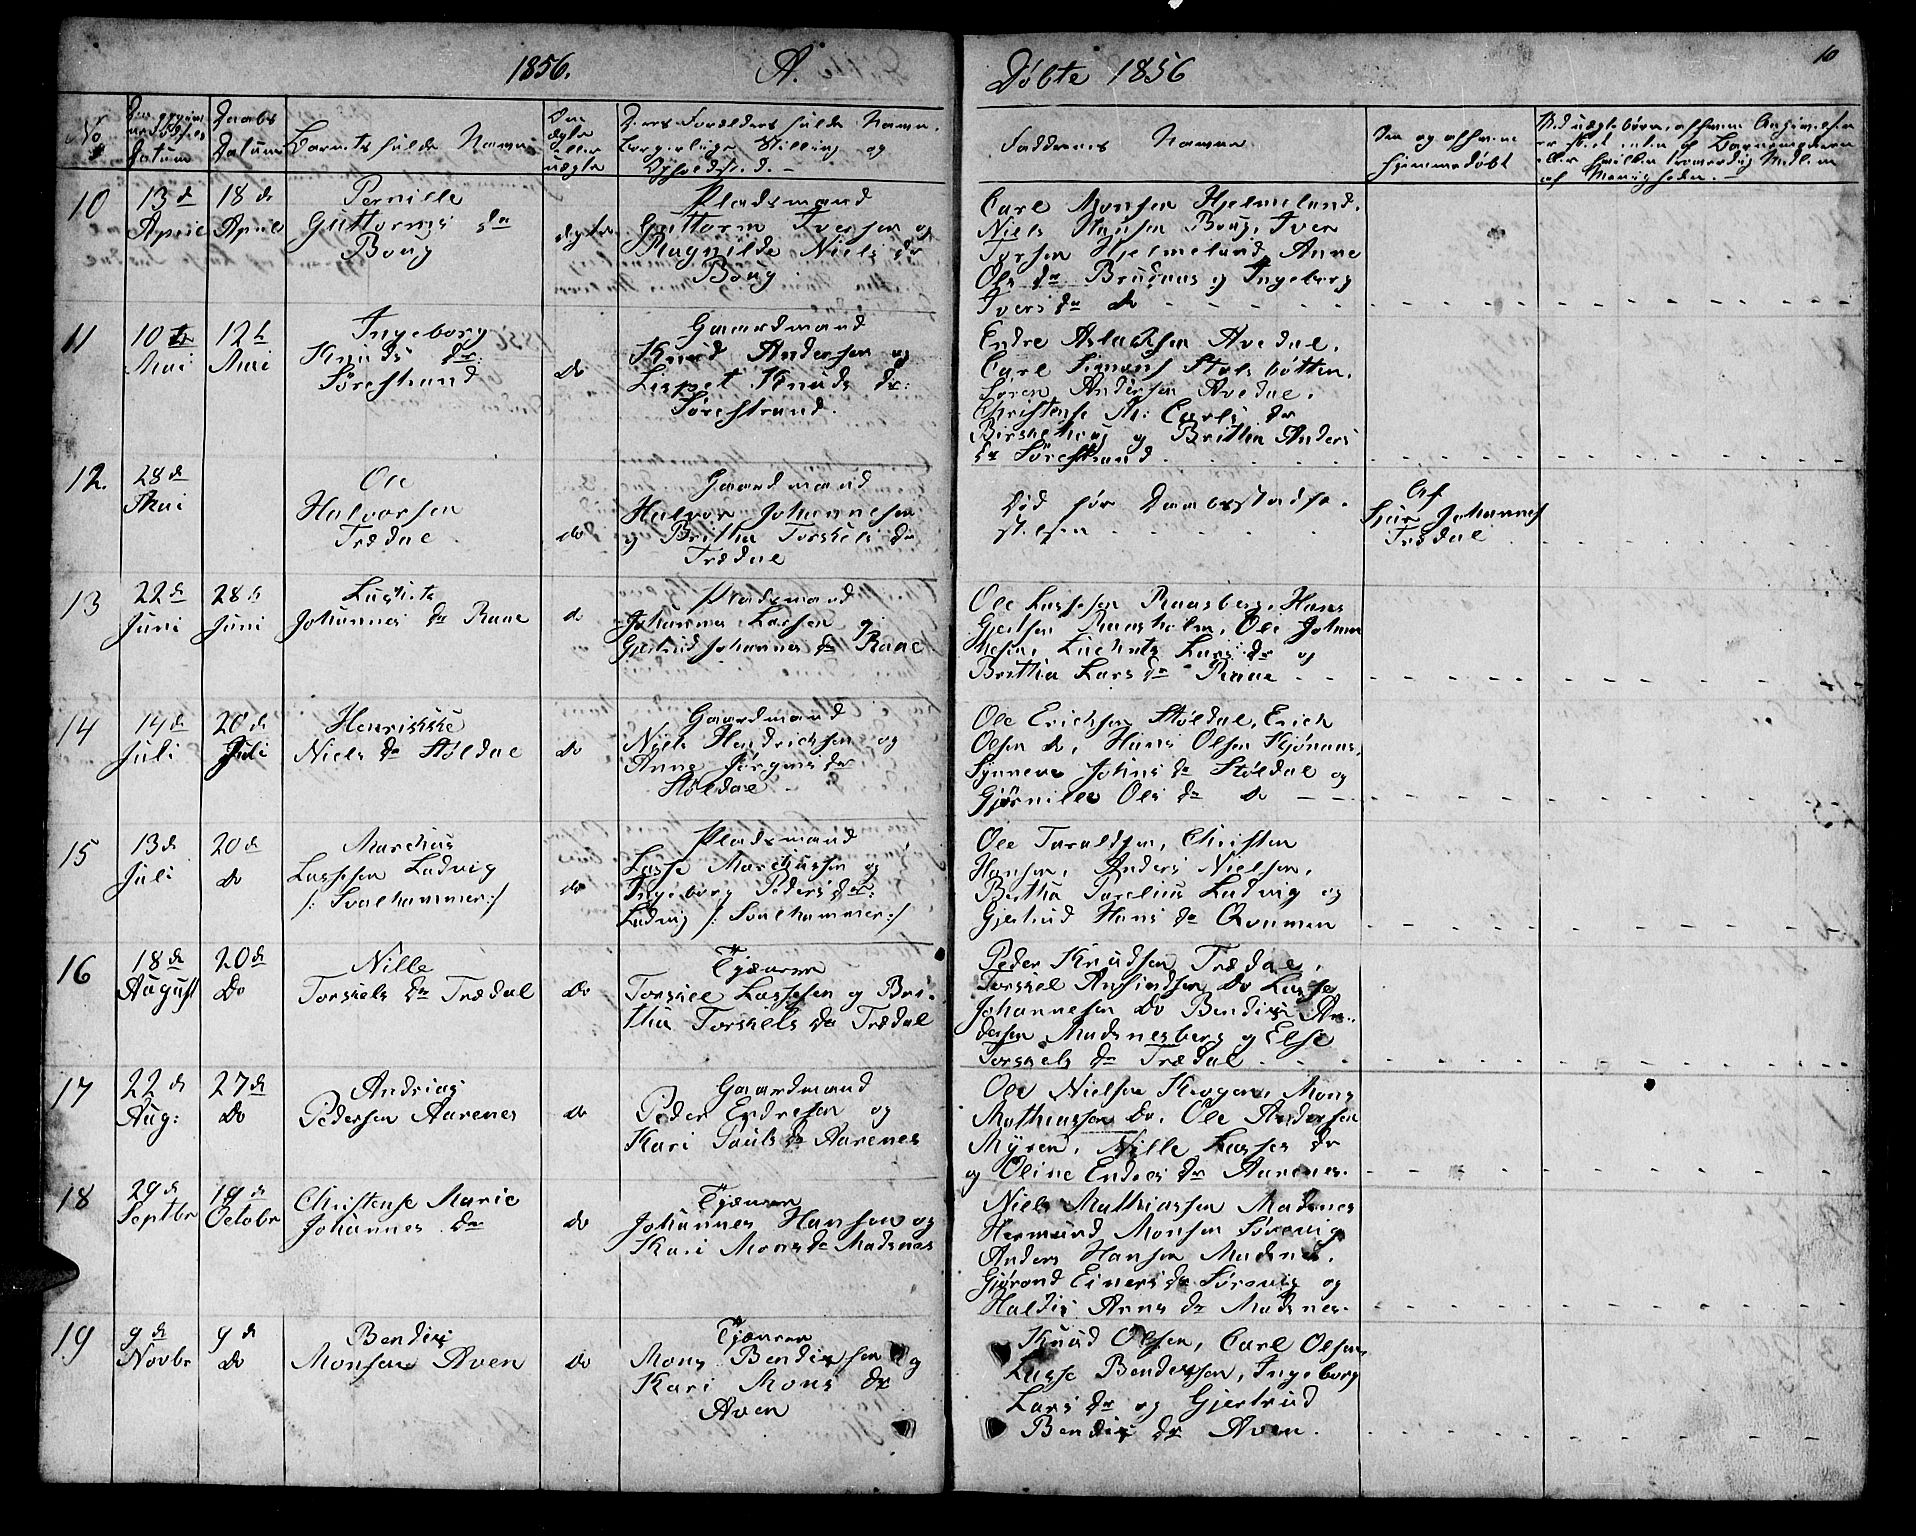 1856. A.
Døbte 1856
10
No
Datum
Daabs
Datum
Barnets fulde Navn
ægte
eller
uægte
Forældres fulde Navn,
borgerlige Stilling og
Opholdssted.
Faddernes Navne
hjemmedøbt
10
13de
April
18de
April
Pernille
Guttorms da
Boug
ægte
Pladsmand
Guttorm Iversen og
Magnilde Niels dr
Boug
Carl Monsen Hjelmeland,
Niels Hansen Boug, Iver
Torsen Hjelmeland, Anne
Ols dr Brudnas og Ingeborg
Ivers da do
11
10de
Mai
12te
Mai
Ingeborg
Knuds dr:
Sørestrand
do
Gaardmand
Knud Andersen og
Lispet Knuds dr:
Sørestrand.
Endre Aslaksen Avedal,
Carl Simons Støls bøtten,
Søren Andersen Avedal,
Christense M: Carls dr
Birkehoug og Britha Anders
da Sørestrand.
12.
28de
Mai
Ole
Halvorsen
Trædal
do
Gaardmand
Halvor Johannesen
og Britha Torskels da
Trædal
Død før Daabsstadfæ-
stelsen
Af
Sjur Johannes
Trædal
13
22de
Juni
28de
Juni
Johannes da Raae
do
Pladsmand
Johannes Larsen og
Gjertrud Johannes da Raae
Ole Lassesen Raasberg, Hans
Gjertsen Raasholm, Ole Johan
nesen, Lars dr og
Britha Lars da Raae
14
14de
Juli
20de
Juli
Henrikke
Niels da Støldal
do
Gaardmand
Niels Hendrichsen og
Anne Jørgens da
Støldal
Ole Erichsen Støldal, Erich
Olsen do, Hans Olsen Kjønaas,
Synneve Johns da Støldal og
Gjørnille Ols da do
15
13de
Juli
20de
do
Marchus
Lassesen Ludvig
/: Svalhammer :/
do
Pladsmand
Lasse Marchussen og
Ingeborg Peders da:
Ludvig /: Svalhammer :/
Ole Taraldsen, Christen
Hansen, Anders Nielsen,
Britha Torelius Ludvig og
Gjertrud Hans da Qvammen
16
18de
August
20de
Do
Nille
Torskels da Trædal
do
Tjæneren
Torskel Lassesen og Bri-
tha Torskels da Trædal
Peder Knudsen Trædal,
Torskel Amundsen Do Lasse
Johannesen Do Bendix An-
dersen Madsnesberg og Else
Torskels da Trædal
17
22de
Aug:
27de
Do
Andrias
Pedersen Aarenes
do
Gaardmand
Peder Endresen og
Kari Pauls da Aarenes
Ole Nielsen Krogen, Mons
Mathiassen Do, Ole Andersen
Myren, Nille Lasses dr
og Oline Endres dr Aarenes.
18
29de
Septbr
19de
Octobr
Christense Marie
Johannes da
do
Tjæneren
Johannes Hansen og
Kari Mons da Madsnes
Niels Mathiassen Madsnes
Hermund Monsen Sørevig
Anders Hansen Madsnes,
Gjørond Einers da Sørevig og
Haldis Arns da Madsnes.
19
9de
Novbr
9de
do
Bendix
Monsen Aven
do
Tjæneren
Mons Bendixsen og
Kari Mons dr
Aven
Knud Olsen, Carl Olsen,
Lasse Bendixsen, Ingeborg
Lars dr og Gjertrud
Bendix dr Aven.